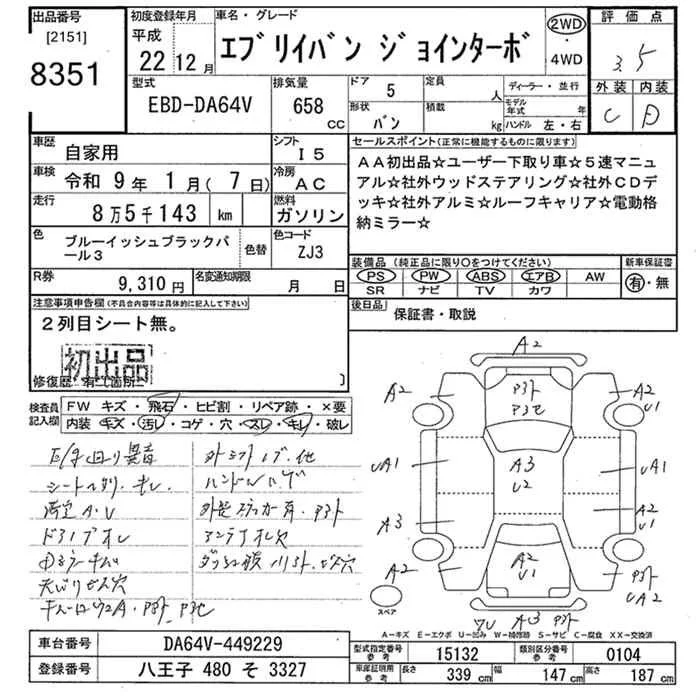 出品番号
[2151]
8351
初度登録年月
平成
22年 12月
車名・グレード
エブリイバン ジョインターボ
2WD
・
4WD
評価点
3.5
外装 内装
C D
型式
EBD-DA64V
排気量
658
CC
ドア 5
形状 バン
定員 人
積載 kg
ディーラー・並行
モデル年式 年
ハンドル 左・右
車歴 自家用
シフト I5
車検 令和 9年 1月(7日)
冷房 AC
走行 8万5千143 km
燃料 ガソリン
色 ブルーイッシュブラックパール3
色替
色コード ZJ3
R券 9,310円
名変通知期限 月 日
セールスポイント(正常に機能するものに限ります)
AA初出品☆ユーザー下取り車☆5速マニュ
アル☆社外ウッドステアリング☆社外CDデ
ッキ☆社外アルミ☆ルーフキャリア☆電動格
納ミラー☆
装備品(純正品に限り〇をつけてください)
新車保証書
PS PW ABS エアB AW
SR ナビ TV カワ
有・無
後日品 保証書・取説
注意事項申告欄(不具合内容等は具体的に記入して下さい)
2列目シート無。
初出品
修復歴 有(箇所 )
検査員記入欄
FW キズ・飛石・ヒビ割・リペア跡・×要
内装 キズ・汚レ・コゲ・穴・スレ・キレ・破レ
E/g回り異音
外シフトノブ・他
ハンドルハゲ
A・V
アンテナオレ
A2
A2
P3ト
P3セ
A2
U1
UA1
A3
U2
UA1
A3
A2
U1
A2
U1
A2
P3ト
UA2
スペア
A3 P3ト
A-キズ E-エクボ U-凹み W-補修跡 S-サビ C-腐食 XX-交換済
車台番号 DA64V-449229
登録番号 八王子 480 そ 3327
型式指定番号
参考
15132
類別区分番号
参考
0104
車庫証明用
参考
長さ 339 cm 幅 147 cm 高さ 187 cm